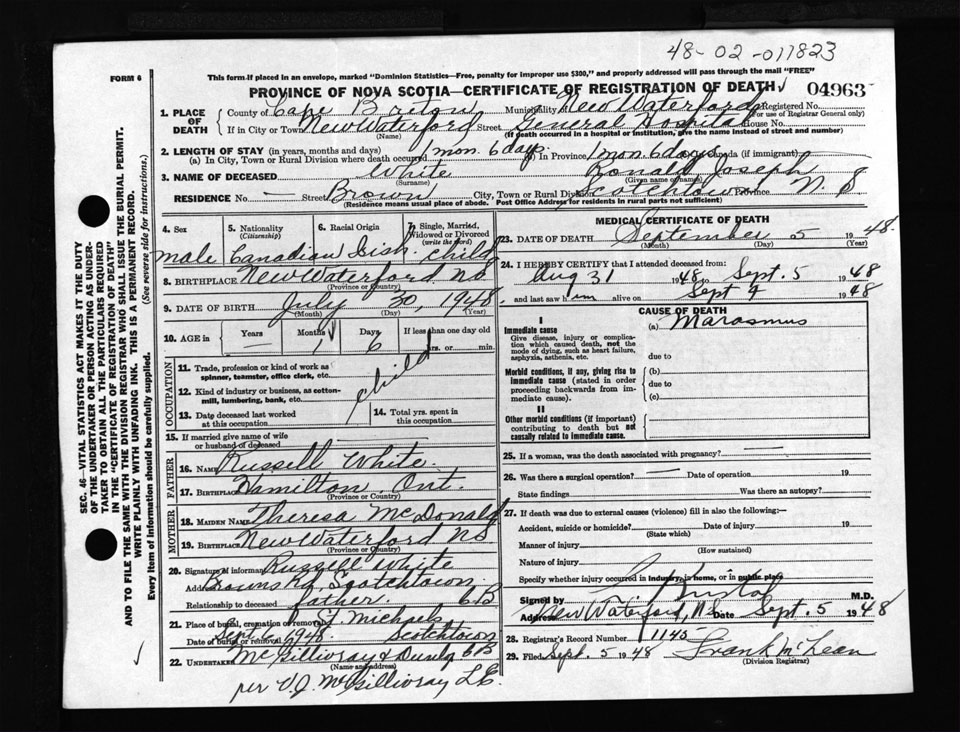 48-02-011823
FORM 6
This form if placed in an envelope, marked "Dominion Statistics—Free, penalty for improper use $300," and properly addressed will pass through the mail "FREE"
PROVINCE OF NOVA SCOTIA—CERTIFICATE OF REGISTRATION OF DEATH 04963
1. PLACE OF DEATH County of Cape Breton Municipality of New Waterford Registered No.
(For use of Registrar General only)
If in City or Town New Waterford Street General Hospital House No.
(Name) (If death occurred in a hospital or institution, give the name instead of street and number)
2. LENGTH OF STAY (in years, months and days)
(a) In City, Town or Rural Division where death occurred 1 mon. 6 days. (b) In Province 1 mon. 6 days Canada (if immigrant)
3. NAME OF DECEASED White Ronald Joseph
(Surname) (Given name or names)
RESIDENCE No. — Street Brown City, Town or Rural Division Scotchtown Province N. S
(Residence means usual place of abode. Post Office Address for residents in rural parts not sufficient)
4. Sex 5. Nationality (Citizenship) 6. Racial Origin 7. Single, Married, Widowed or Divorced (write the word)
male Canadian Irish child
8. BIRTHPLACE New Waterford NS
(Province or Country)
9. DATE OF BIRTH July 30, 1948
(Month) (Day) (Year)
10. AGE in Years Months Days If less than one day old
— 1 6 hrs. or min.
OCCUPATION
11. Trade, profession or kind of work as spinner, teamster, office clerk, etc.
12. Kind of industry or business, as cotton-mill, lumbering, bank, etc.
child
13. Date deceased last worked at this occupation
14. Total yrs. spent in this occupation
15. If married give name of wife or husband of deceased
FATHER
16. NAME Russell White.
17. BIRTHPLACE Hamilton Ont.
(Province or Country)
MOTHER
18. MAIDEN NAME Theresa McDonald
19. BIRTHPLACE New Waterford NS
(Province or Country)
20. Signature of informant Russell White
Address Browns Rd, Scotchtown
Relationship to deceased father. CB
21. Place of burial, cremation or removal St. Michaels
Date of burial or removal Sept 6 1948. Scotchtown
22. UNDERTAKER McGillivray & Dunlap CB
(Name and address)
per V. J. McGillivray L.E.
MEDICAL CERTIFICATE OF DEATH
23. DATE OF DEATH September 5 1948.
(Month) (Day) (Year)
24. I HEREBY CERTIFY that I attended deceased from:
Aug 31 1948 to Sept. 5 1948
and last saw him alive on Sept 4 1948
CAUSE OF DEATH
I
Immediate cause (a) Marasmus
Give disease, injury or complication which caused death, not the mode of dying, such as heart failure, asphyxia, asthenia, etc.
due to
Morbid conditions, if any, giving rise to immediate cause (stated in order proceeding backwards from immediate cause).
(b)
due to
(c)
II
Other morbid conditions (if important) contributing to death but not causally related to immediate cause.
25. If a woman, was the death associated with pregnancy? —
26. Was there a surgical operation? — Date of operation 19
State findings Was there an autopsy?
27. If death was due to external causes (violence) fill in also the following:—
Accident, suicide or homicide? Date of injury 19
(State which)
Manner of injury
(How sustained)
Nature of injury
Specify whether injury occurred in industry, in home, or in public place
Signed by M.D.
Address New Waterford, NS Date Sept. 5 1948
28. Registrar's Record Number 1145
29. Filed Sept. 5 1948 Frank McLean
(Division Registrar)
SEC. 46—VITAL STATISTICS ACT MAKES IT THE DUTY
OF THE UNDERTAKER OR PERSON ACTING AS UNDER-
TAKER TO OBTAIN ALL THE PARTICULARS REQUIRED
IN THE "CERTIFICATE OF REGISTRATION OF DEATH"
AND TO FILE THE SAME WITH THE DIVISION REGISTRAR WHO SHALL ISSUE THE BURIAL PERMIT.
WRITE PLAINLY WITH UNFADING INK. THIS IS A PERMANENT RECORD.
Every item of information should be carefully supplied. (See reverse side for instructions.)